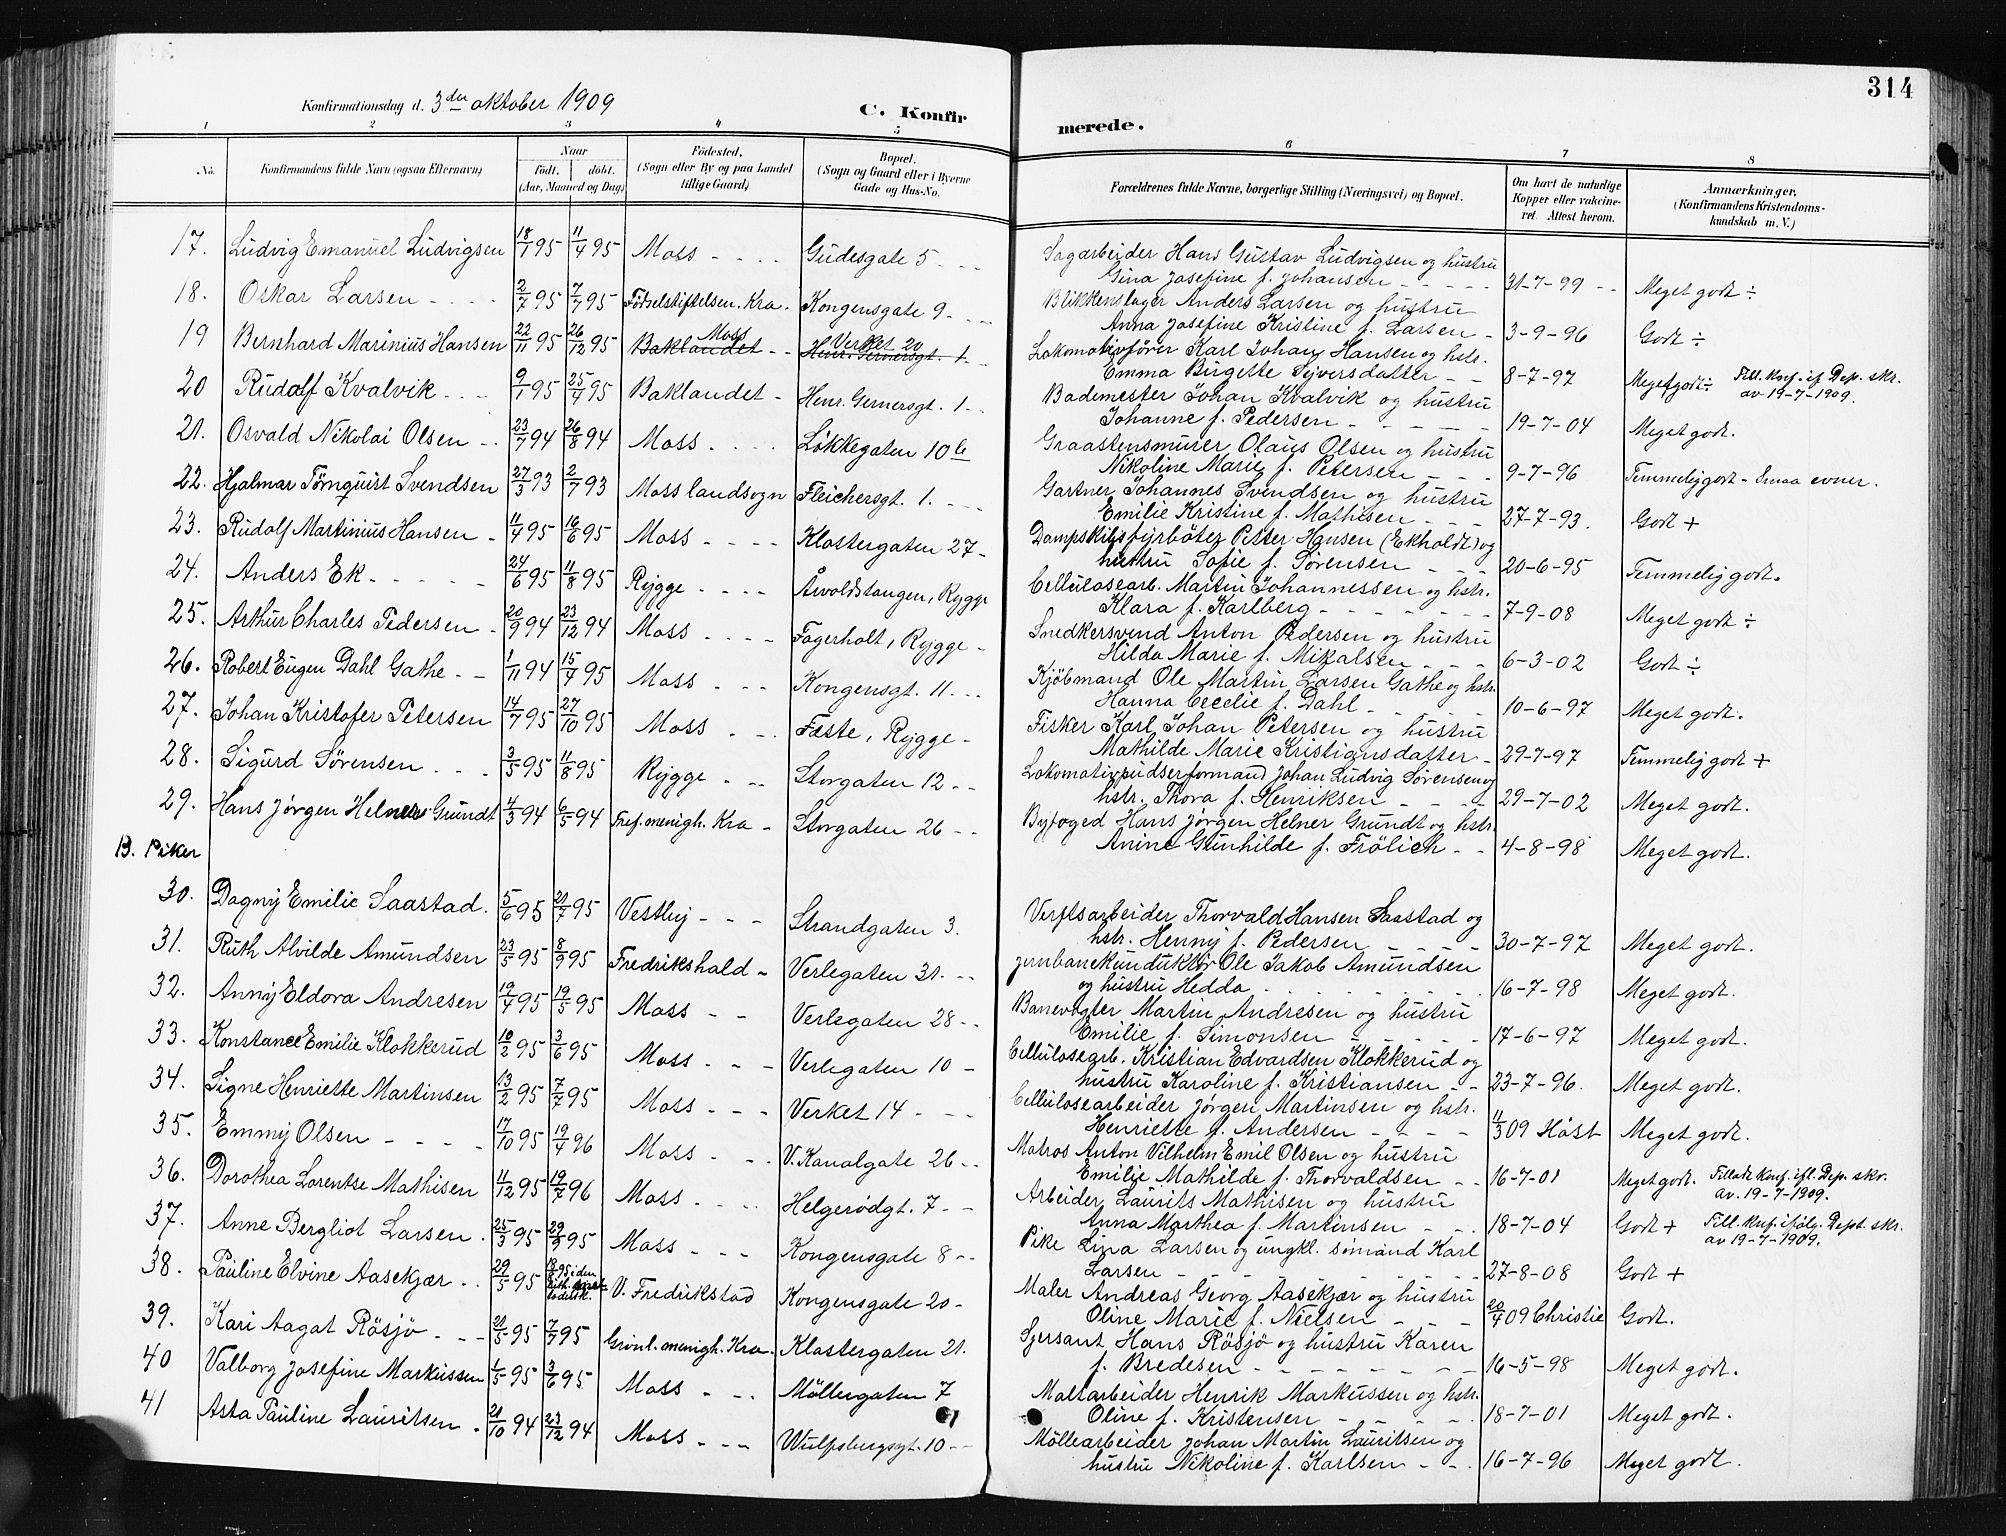 314
Konfirmationsdag d. 3die oktober 1909
C. Konfirmerede.
1 2 3 4 5 6 7 8
No. Konfirmandens fulde Navn (ogsaa Efternavn) Naar født. døbt. (Aar, Maaned og Dag) Fødested. (Sogn eller By og paa Landet tillige Gaard) Bopæl. (Sogn og Gaard eller i Byerne Gade og Hus-No. Forældrenes fulde Navne, borgerlige Stilling (Næringsvei) og Bopæl. Om havt de naturlige Kopper eller vaccineret. Attest herom. Anmærkninger. (Konfirmandens Kristendomskundskab m. V.)
17. Ludvig Emanuel Ludvigsen 18/1 95 11/4 95 Moss Gudesgate 5 Sagarbeider Hans Gustav Ludvigsen og hustru
Gina Josefine f. Johansen 31-7-99 Meget godt ÷
18. Oskar Larsen 2/7 95 7/7 95 Fødselstiftelsen. Kra. Kongensgate 9 Blikkenslager Anders Larsen og hustru
Anna Josefine Kristine f. Larsen 3-9-96 Godt ÷
19 Bernhard Marinius Hansen 22/11 95 26/12 95 Baklandet Moss Henr. Gernersgt. 1 Verket 20 Lokomotivfører Karl Johan Hansen og hstr.
Emma Birgette Syversdatter 8-7-97 Meget godt ÷ Till. knf. if. Dep. skr. av 19-7-1909.
20 Rudolf Kvalvik 9/1 95 25/4 95 Baklandet Henr. Gernersgt. 1 Bademester Johan Kvalvik og hustru
Johanne f. Pedersen 19-7-04 Meget godt.
21. Osvald Nikolai Olsen 23/7 94 26/8 94 Moss Løkkegaten 10 b Graastensmurer Olaus Olsen og hustru
Nikoline Marie f. Petersen 9-7-96 Temmelig godt - Smaa evner.
22. Hjalmar Törnquist Svendsen 27/3 93 2/7 93 Moss landsogn Fleichersgt. 1. Gartner Johannes Svendsen og hustru
Emilie Kristine f. Mathisen 27-7-93. Godt +
23. Rudolf Martinius Hansen 11/4 95 16/6 95 Moss Klostergaten 27 Dampskibsfyrbøter Petter Hansen (Ekholdt) og
hustru Sofie f. Sørensen 20-6-95 Temmelig godt.
24. Anders Ek 24/6 95 11/8 95 Rygge Årvoldstangen, Rygge Cellulosearb. Martin Johannessen og hstr.
Klara f. Karlberg 7-9-08 Meget godt ÷
25. Arthur Charles Pedersen 20/9 94 23/12 94 Moss Fagerholt, Rygge Snedkersvend Anton Pedersen og hustru
Hilda Marie f. Mikalsen 6-3-02 Godt ÷
26. Robert Eugen Dahl Gathe 1/11 94 15/7 95 Moss Kongensgt. 11 Kjøbmand Ole Martin Larsen Gathe og hstr.
Hanna Cecelie f. Dahl 10-6-97 Meget godt.
27. Johan Kristofer Petersen 14/7 95 27/10 95 Moss Fæste, Rygge Fisker Karl Johan Petersen og hustru
Mathilde Marie Kristiansdatter 29-7-97 Temmelig godt +
28. Sigurd Sørensen 3/5 95 11/8 95 Rygge Storgaten 12 Lokomotivpudserformand Johan Ludvig Sørensen og
hstr. Thora f. Henriksen 29-7-02 Meget godt.
29. Hans Jørgen Helner Grundt 4/3 94 6/5 94 Tref. menigh. Kra Storgaten 26 Byfoged Hans Jørgen Helner Grundt og hstr.
Anine Gunhilde f. Frölich 4-8-98 Meget godt.
B. Piker
30. Dagny Emilie Saastad 5/6 95 21/7 95 Vestby Strandgaten 3. Verftsarbeider Thorvald Hansen Saastad og
hstr. Henny f. Pedersen 30-7-97 Meget godt.
31. Ruth Alvilde Amundsen 23/5 95 8/9 95 Fredrikshald Verlegaten 31 Jernbanekunduktør Ole Jakob Amundsen
og hustru Hedda 16-7-98 Meget godt.
32. Anny Eldora Andresen 19/4 95 19/5 95 Moss Verlegaten 28 Banevogter Martin Andresen og hustru
Emilie f. Simonsen 17-6-97 Meget godt.
33. Konstance Emilie Klokkerud 10/2 95 3/6 95 Moss Verlegaten 10 Cellulosearb. Kristian Edvardsen Klokkerud og
hustru Karoline f. Kristiansen 23-7-96. Meget godt.
34. Signe Henriette Martinsen 13/2 95 7/7 95 Moss Verket 14 Cellulosearbeider Jørgen Martinsen og hstr.
Henriette f. Andersen 11/3 09 Höst Meget godt.
35. Emmy Olsen 17/10 95 19/4 96 Moss V. Kanalgate 26 Matros Anton Vilhelm Emil Olsen og hustru
Emilie Mathilde f. Thorvaldsen 16-7-01 Meget godt. Tilladt knf. ifl. Dep. skr. av. 19-7-1909.
36. Dorothea Lorentse Mathisen 11/12 95 19/7 96 Moss Helgerødgt. 7 Arbeider Laurits Mathisen og hustru
Anna Marthea f. Martinsen 18-7-04 Godt + Till. knf. ifølg. Dept. skr. av 19-7-1909.
37. Anne Bergliot Larsen 25/3 95 29/9 95 Moss Kongensgate 8 Pike Lina Larsen og ungkl. sømand Karl
Larsen 27-8-08 Godt +
38. Pauline Elvine Aasekjær 29/5 95 95 iden V. Fredrikstad Kongensgate 20 Maler Andreas Georg Aasekjær og hustru
Oline Marie f. Nielsen 20/4 09 Christie Godt.
39. Kari Aagat Rösjö 21/5 95 7/7 95 Grönl. menigh. Kra. Klostergaten 21. Sersant Hans Rösjö og hustru Karen
f. Bredesen 16-5-98 Meget godt.
40 Valborg Josefine Markussen 1/5 95 3/6 95 Moss Möllergaten 7 Maltarbeider Henrik Markussen og hstr.
Oline f. Kristensen 18-7-01 Meget godt.
41 Asta Pauline Lauritsen 21/10 94 23/12 94 Moss Wulfsbergsgt. 10 Möllearbeider Johan Martin Lauritsen og
hustru Nikoline f. Karlsen 16-7-96 Meget godt.